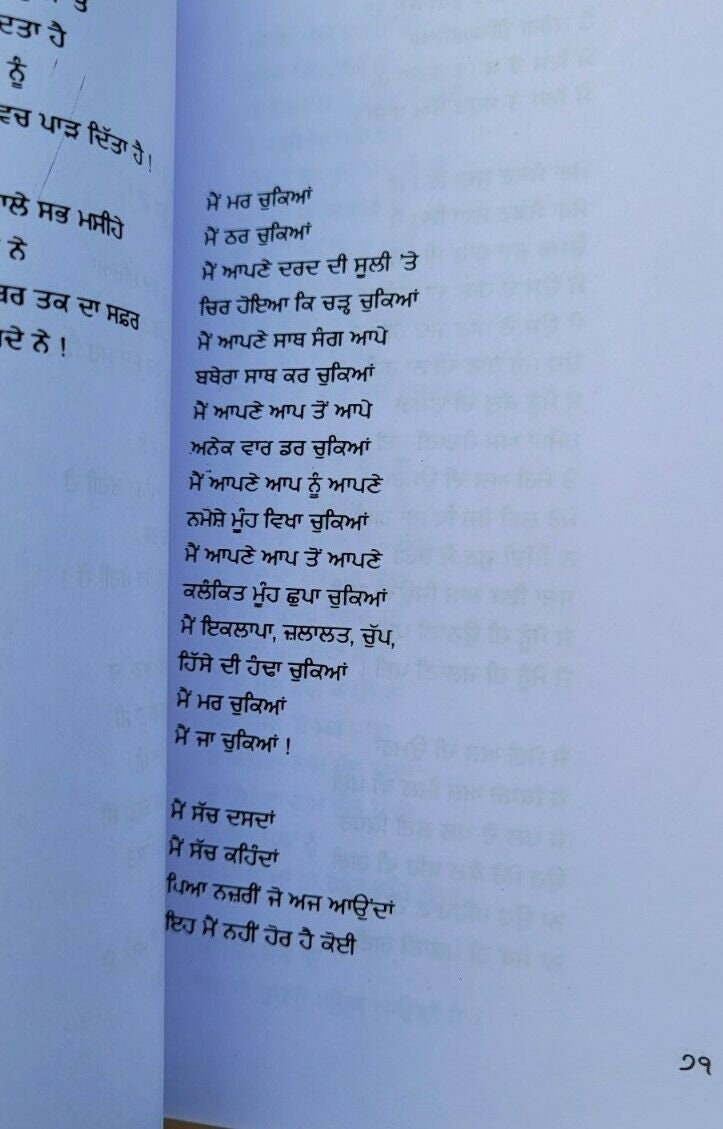 ਦਤਾ ਹੈ
ਨੂੰ
ਵਿਚ ਪਾੜ ਦਿੱਤਾ ਹੈ!
ਾਲੇ ਸਭ ਮਸੀਹੇ
ਨੇ
ਬਰ ਤਕ ਦਾ ਸਫ਼ਰ
ਦੇ ਨੇ !
ਮੈਂ ਮਰ ਚੁਕਿਆਂ
ਮੈਂ ਠਰ ਚੁਕਿਆਂ
ਮੈਂ ਆਪਣੇ ਦਰਦ ਦੀ ਸੂਲੀ 'ਤੇ
ਚਿਰ ਹੋਇਆ ਕਿ ਚੜ੍ਹ ਚੁਕਿਆਂ
ਮੈਂ ਆਪਣੇ ਸਾਥ ਸੰਗ ਆਪੇ
ਬਥੇਰਾ ਸਾਥ ਕਰ ਚੁਕਿਆਂ
ਮੈਂ ਆਪਣੇ ਆਪ ਤੋਂ ਆਪੇ
ਅਨੇਕ ਵਾਰ ਡਰ ਚੁਕਿਆਂ
ਮੈਂ ਆਪਣੇ ਆਪ ਨੂੰ ਆਪਣੇ
ਨਮੋਸ਼ੇ ਮੂੰਹ ਵਿਖਾ ਚੁਕਿਆਂ
ਮੈਂ ਆਪਣੇ ਆਪ ਤੋਂ ਆਪਣੇ
ਕਲੰਕਿਤ ਮੂੰਹ ਛੁਪਾ ਚੁਕਿਆਂ
ਮੈਂ ਇਕਲਾਪਾ, ਜ਼ਲਾਲਤ, ਚੁੱਪ,
ਹਿੱਸੇ ਦੀ ਹੰਢਾ ਚੁਕਿਆਂ
ਮੈਂ ਮਰ ਚੁਕਿਆਂ
ਮੈਂ ਜਾ ਚੁਕਿਆਂ !
ਮੈਂ ਸੱਚ ਦਸਦਾਂ
ਮੈਂ ਸੱਚ ਕਹਿੰਦਾਂ
ਪਿਆ ਨਜ਼ਰੀਂ ਜੋ ਅਜ ਆਉਂਦਾਂ
ਇਹ ਮੈਂ ਨਹੀਂ ਹੋਰ ਹੈ ਕੋਈ
੭੧